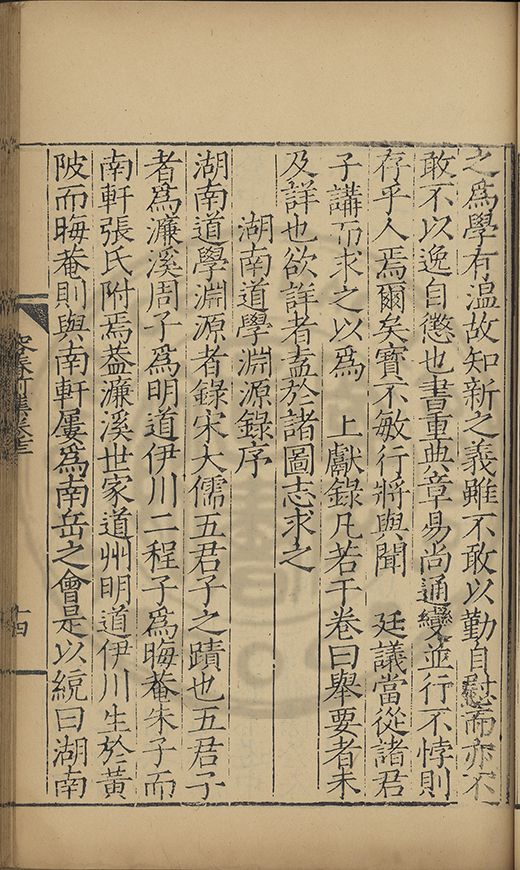 之爲學有温故知新之義雖不敢以勤自慰而亦不
敢不以逸自懲也書重典章易尚通變並行不悖則
存乎人焉爾矣寳不敏行將與聞　廷議當從諸君
子講而求之以爲　上獻録凡若干卷曰舉要者未
及詳也欲詳者盍於諸圖志求之
湖南道學淵源録序
湖南道學淵源者錄宋大儒五君子之蹟也五君子
者爲濂溪周子爲明道伊川二程子爲晦菴朱子而
南軒張氏附焉葢濂溪世家道州明道伊川生於黄
陂而晦菴則與南軒屢爲南岳之會是以統曰湖南
十四